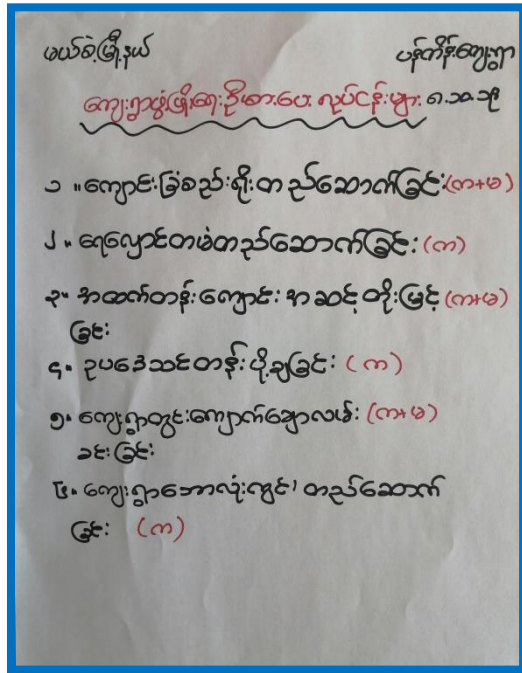 မယ်စဲ့မြို့နယ် ပန်ကိန်းကျေးရွာ
ကျေးရွာဖွံ့ဖြိုးရေးဦးစားပေး လုပ်ငန်းများ ၈.၁၁.၁၉
၁ ။ ကျောင်းခြံစည်းရိုးတည်ဆောက်ခြင်း (က+မ)
၂ ။ ရေလှောင်တမံတည်ဆောက်ခြင်း (က)
၃ ။ အထက်တန်းကျောင်းအဆင့်တိုးမြှင့် (က+မ)
ခြင်း
၄ ။ ဥပဒေသင်တန်းပို့ချခြင်း (က)
၅ ။ ကျေးရွာတွင်းကျောက်ချောလမ်း (က+မ)
ခင်းခြင်း
၆ ။ ကျေးရွာဘောလုံးကွင်း တည်ဆောက်
ခြင်း (က)